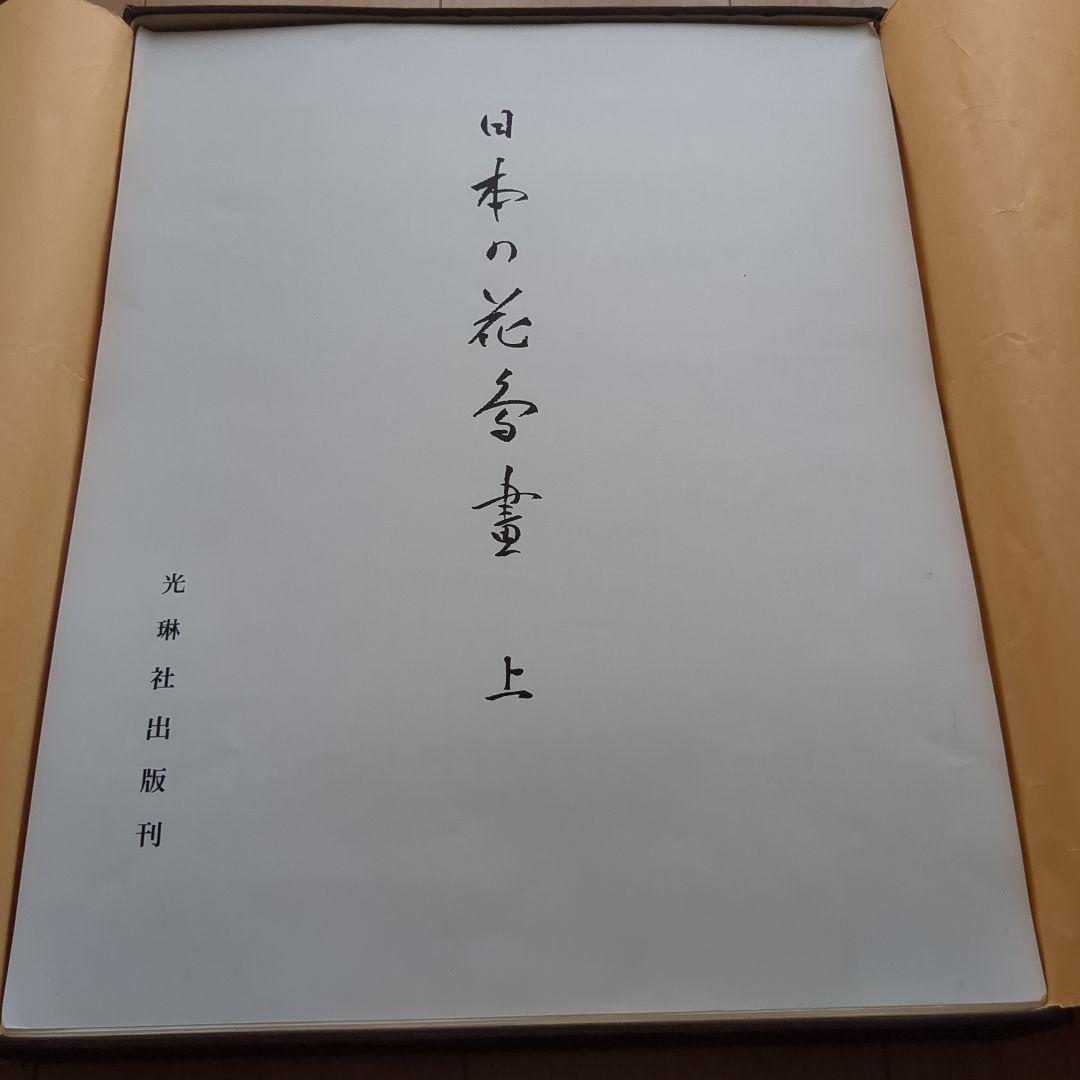 日本の花鳥畫 上
光琳社出版刊